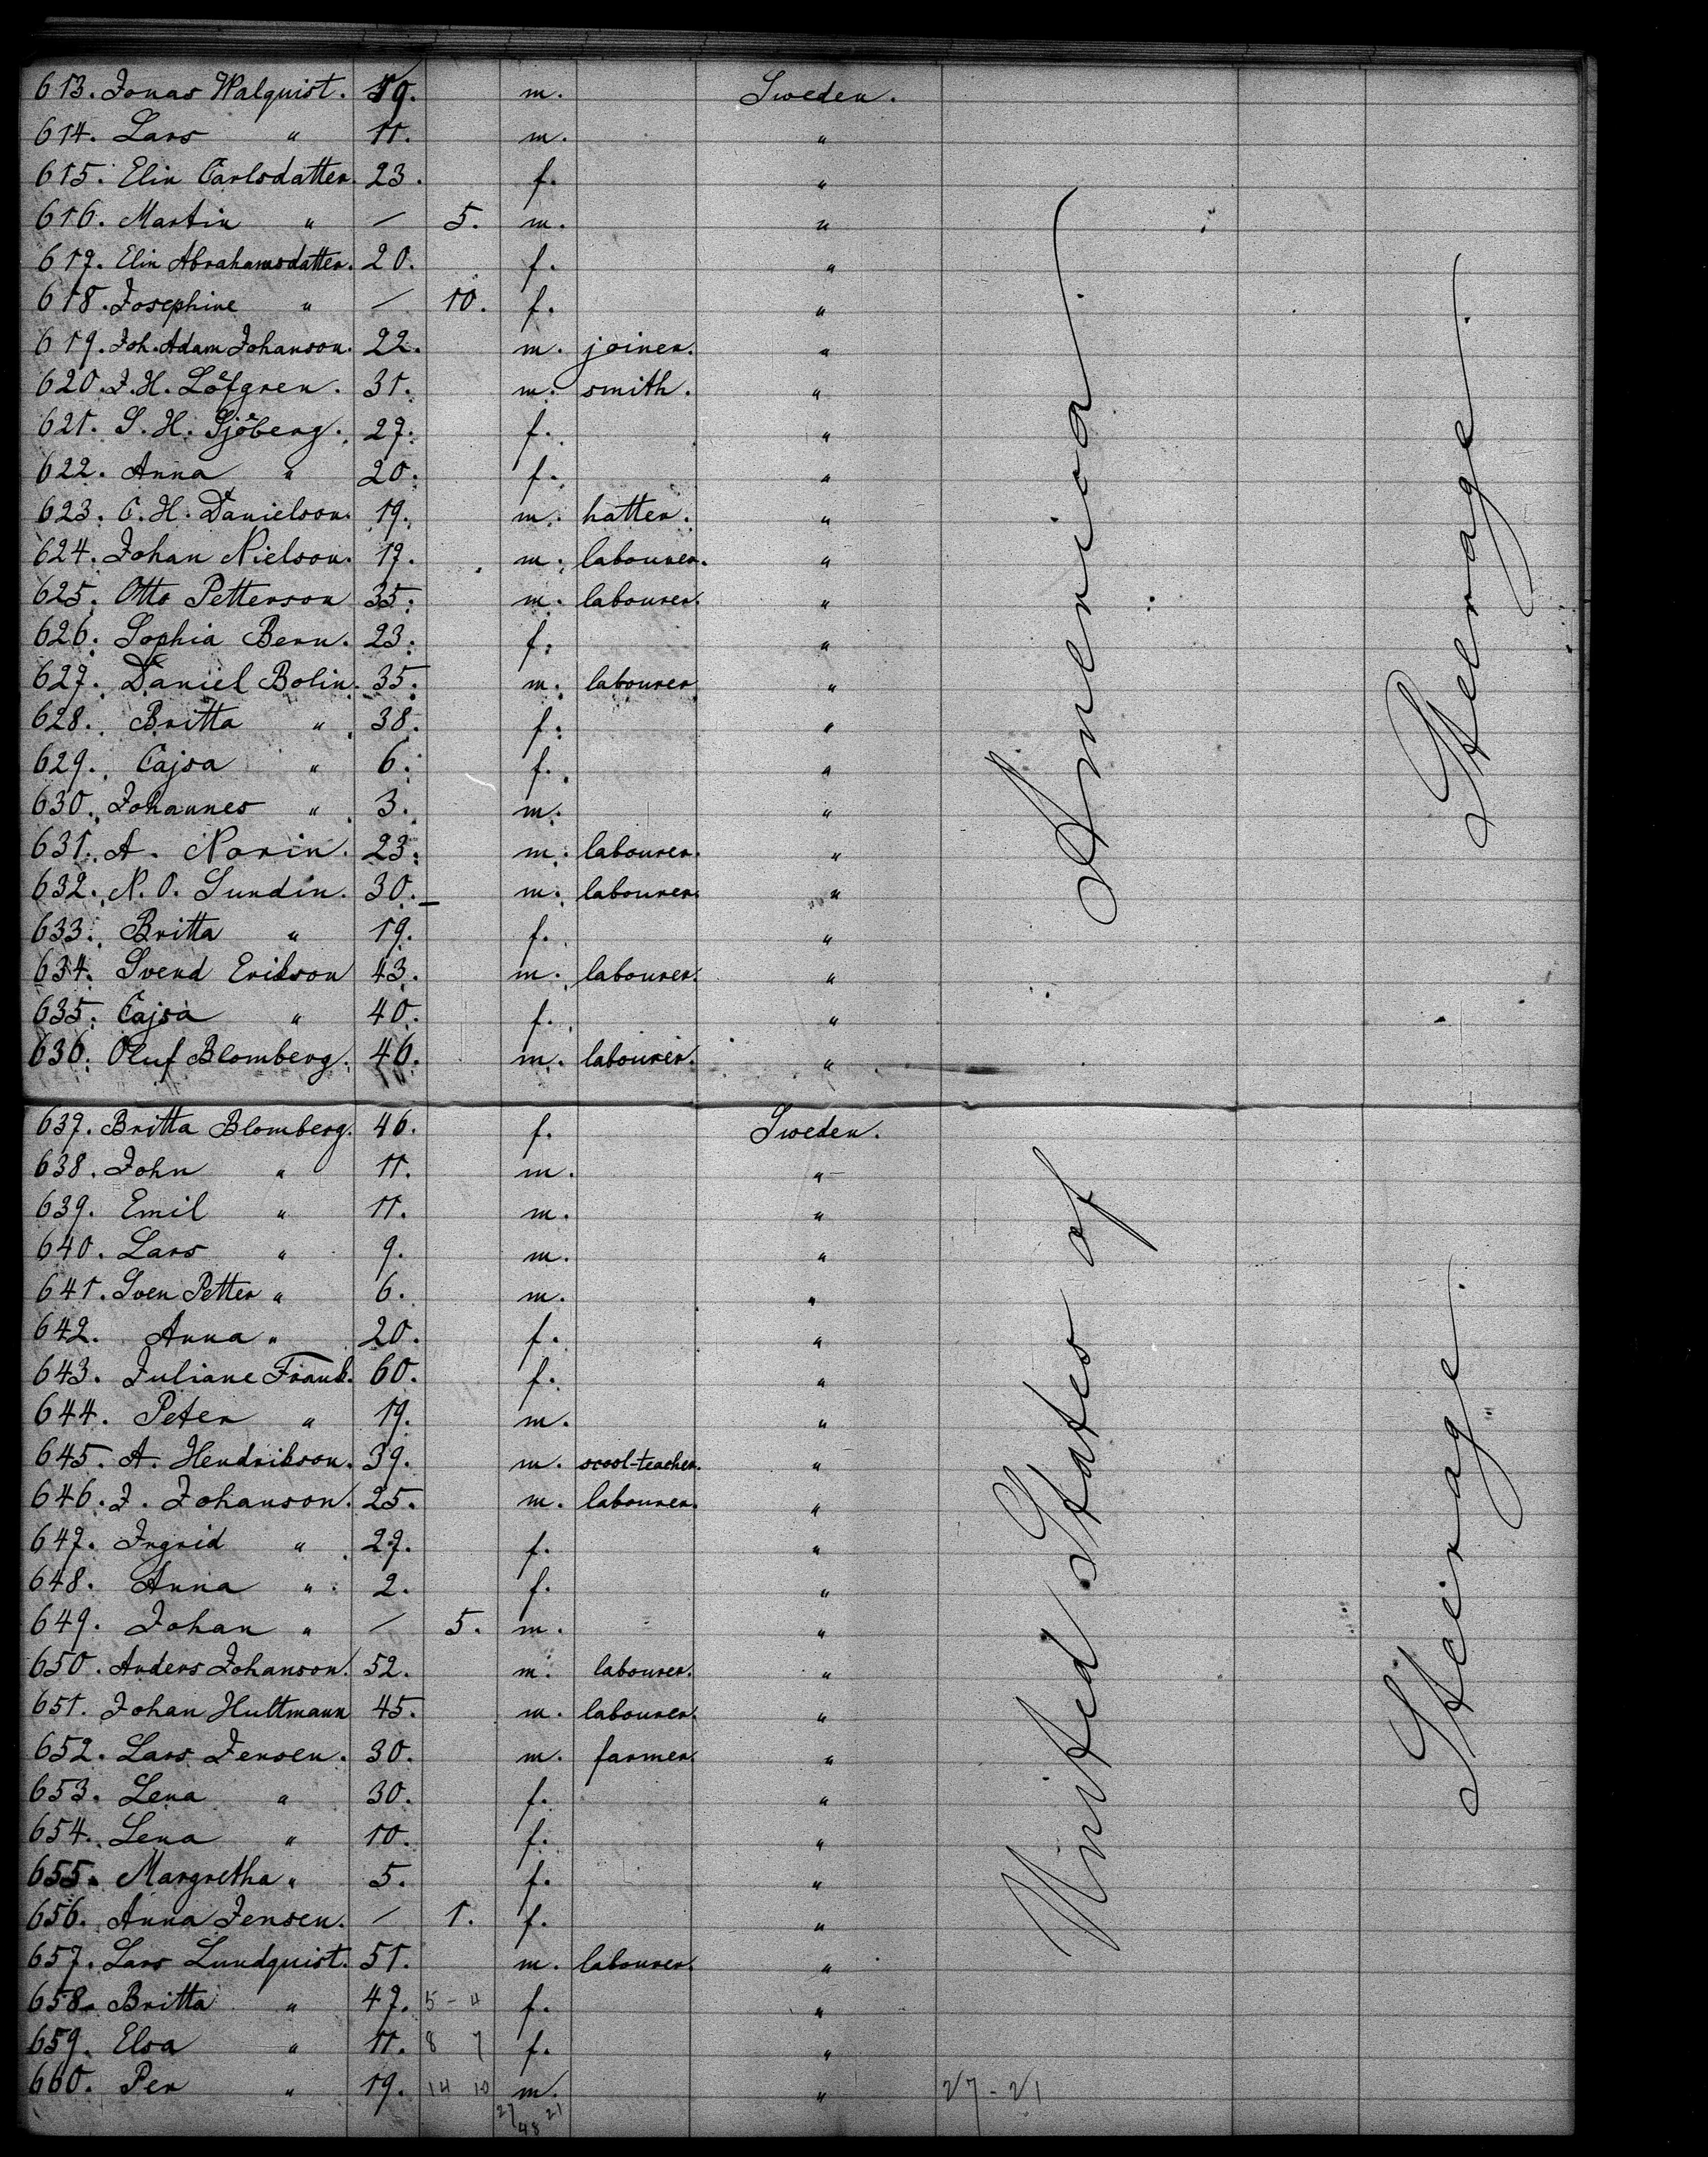 613. Jonas Walquist. 19. m. Sweden.
614. Lars " 11. m. "
615. Elin Carlsdatter. 23. f. "
616. Martin " – 5. m. "
617. Elin Abrahamsdatter. 20. f. "
618. Josephine " – 10. f. "
619. Joh. Adam Johanson. 22. m. joiner. "
620. J. H. Löfgren. 31. m. smith. "
621. S. H. Sjöberg. 27. f. "
622. Anna " 20. f. "
623. C. H. Danielson. 19. m. hatter. "
624. Johan Nielson. 17. m. labourer. "
625. Otto Petterson 35. m. labourer. "
626. Sophia Bern. 23. f. "
627. Daniel Bolin. 35. m. labourer "
628. Britta " 38. f. "
629. Cajsa " 6. f. "
630. Johannes " 3. m. "
631. A. Norin. 23. m. labourer. "
632. N. O. Sundin. 30. m. labourer. "
633. Britta " 19. f. "
634. Svend Erikson 43. m. labourer. "
635. Cajsa " 40. f. "
636. Oluf Blomberg. 46. m. labourer. "
America
Steerage.
637. Britta Blomberg. 46. f. Sweden.
638. John " 11. m. "
639. Emil " 11. m. "
640. Lars " 9. m. "
641. Sven Petter " 6. m. "
642. Anna " 20. f. "
643. Juliane Frank. 60. f. "
644. Peter " 19. m. "
645. A. Hendrikson. 39. m. scool-teacher. "
646. J. Johanson. 25. m. labourer. "
647. Ingrid " 27. f. "
648. Anna " 2. f. "
649. Johan " – 5. m. "
650. Anders Johanson. 52. m. labourer. "
651. Johan Hultmann 45. m. labourer. "
652. Lars Jensen. 30. m. farmer. "
653. Lena " 30. f. "
654. Lena " 10. f. "
655. Margretha " 5. f. "
656. Anna Jensen. – 1. f. "
657. Lars Lundquist. 51. m. labourer. "
658. Britta " 47. 5 - 4 f. "
659. Elsa " 11. 8 7 f. "
660. Per " 19. 14 10 m. " 27 - 21
27 21
48
United States of
Steerage.